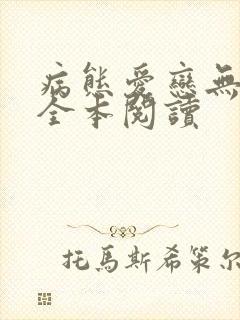 病態愛戀無
全本閱讀
托馬斯希策尔